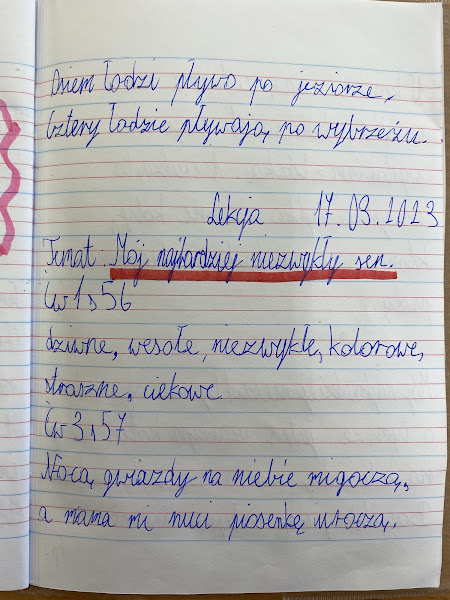 Osiem łodzi pływa po jeziorze.
Cztery łodzie pływają po wybrzeżu.
Lekcja 17.03.2023
Temat: Mój najbardziej niezwykły sen.
Ćw 1 s 56
dziwne, wesołe, niezwykłe, kolorowe,
straszne, ciekawe.
Ćw 3 s 57
Nocą gwiazdy na niebie migoczą,
a mama mi nuci piosenkę uroczą.